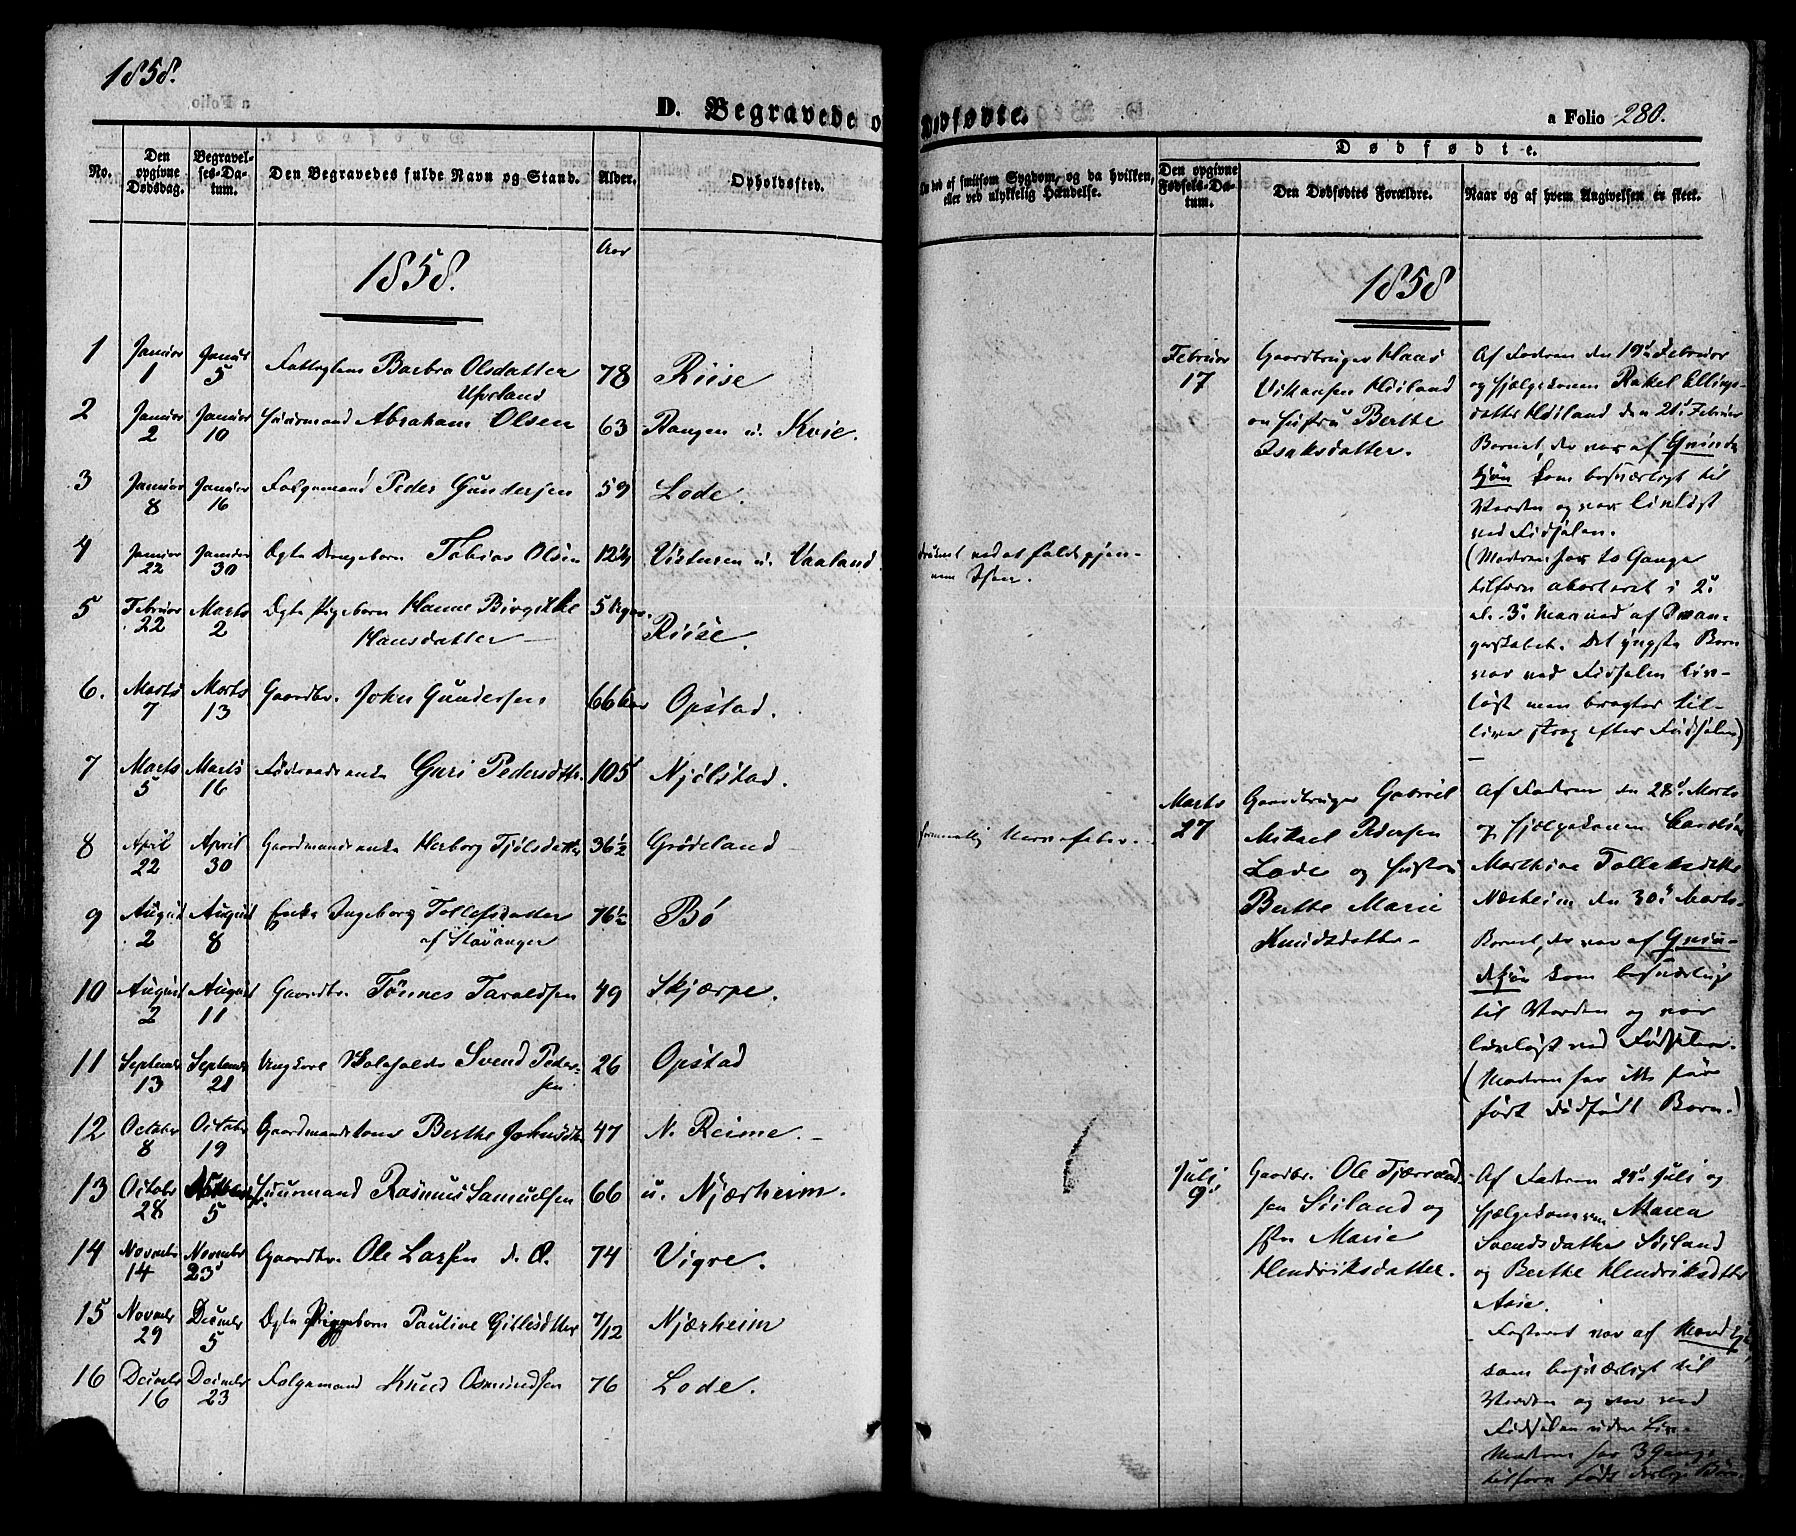 1858.
D. Begravede o
No.
Den opgivne Dødsdag.
Begravelses-Datum.
Den Begravedes fulde Navn og Stand.
Alder.
Opholdssted.
Aar
1858.
1 Januar 1 Januar 5 Barbra Olsdatter 78 Riise
Ueland
2 Januar 2 Januar 10 Huusmand Abraham Olsen 63 Haugen u. Kvie.
3 Januar 8 Januar 16 Folgemand Peder Gundersen 59 Lode.
4 Januar 22 Januar 30 Ægte Drengebarn Tobias Olsen 12 Vaaland
5 Februar 22 Marts 2 Ægte Pigebarn Hanne Birgitthe 5 Uger.
Hansdatter Riise.
6. Marts 7 Marts 13 Gaardbr. John Gundersen 66 Aar Opstad.
7 Marts 5 Marts 16 Føderaadsenke Guri Pedersdtr. 105 Njølstad.
8 April 22 April 30 Gaardmandsenke Herborg Tjølsdattr 36 1/2 Grødeland
9 August 2 August 8 Enke Ingeborg Tollefsdatter 76 1/2 Bø
af Stavanger
10 August 2 August 11 Gaardbr. Tønnes Taraldsen 49 Skjærpe.
11 September 13 September 21 Ungkarl Svend Peder- 26 Opstad
sen
12 October 8 October 19 Gaardmandskone Berthe Johnsdtr 47 N. Reime.
13 October 28 5 Huusmand Rasmus Samuelsen 66 u. Njærheim.
14 Novembr 14 November 23 Gaardbr. Ole Larsen d. Æ. 74 Vigre.
15 Novembr 29 Decembr 5 Ægte Pigebarn Pauline Gitlesdtter 7/12 Njærheim
16 Decembr 16 Decembr 23 Folgemand Knud Osmundsen 76 Lode.
Dødfødte.
a Folio 280.
død af smitsom Sygdom, og da hvilken,
eller ved ulykkelig Hændelse.
Dødfødte.
Den opgivne Fødsels-Datum.
Den Dødfødtes Forældre.
Naar og af hvem Angivelsen er skeet.
druknet ved at falde gjen-
nem Isen.
1858
Februar 17
Gaardbruger Klaas
Høiland
og Hustru Berthe
Isaksdatter.
Af Faderen den 19de Februar
og Hjælpekonen Rakel Ellings-
datter Høiland den 21de Februar
Barnet, der var af Qvinde
kjøn kom besværligt til
Verden og var livløst
ved Fødselen.
(Moderen har to Gange
tilforn aborteret i 2d
el. 3d Maaned af Svan-
gerskabet. Det yngste Barn
var ved Fødselen liv-
løst men bragtes til-
live strax efter Fødselen)
Marts 27
Gaardbruger Gabriel
Mikael Pedersen
Lode og Hustru
Berthe Marie
Knudsdatter
Af Faderen den 28d Marts
og Hjælpekonen
Marthine Tollefsdatter
Nærheim den 30d Marts.
Barnet, der var af Qvin-
dekjøn kom besværligt
til Verden og var
livløst ved Fødselen.
(Moderen har ikke før
født dødfødt Barn.)
Juli 9d
Gaardbr. Ole Tjærrand-
sen Søiland og
Hstru Marie
Hendriksdatter.
Af Faderen Juli og
Hjælpekonerne Maren
Svendsdatter Søiland
og Berthe Hendriksdtter
Fosteret var af Mandkjøn,
som besværligt til
Verden og var ved
Fødselen uden Liv.
Moderen har 3 Gange
tilforn født Børn.